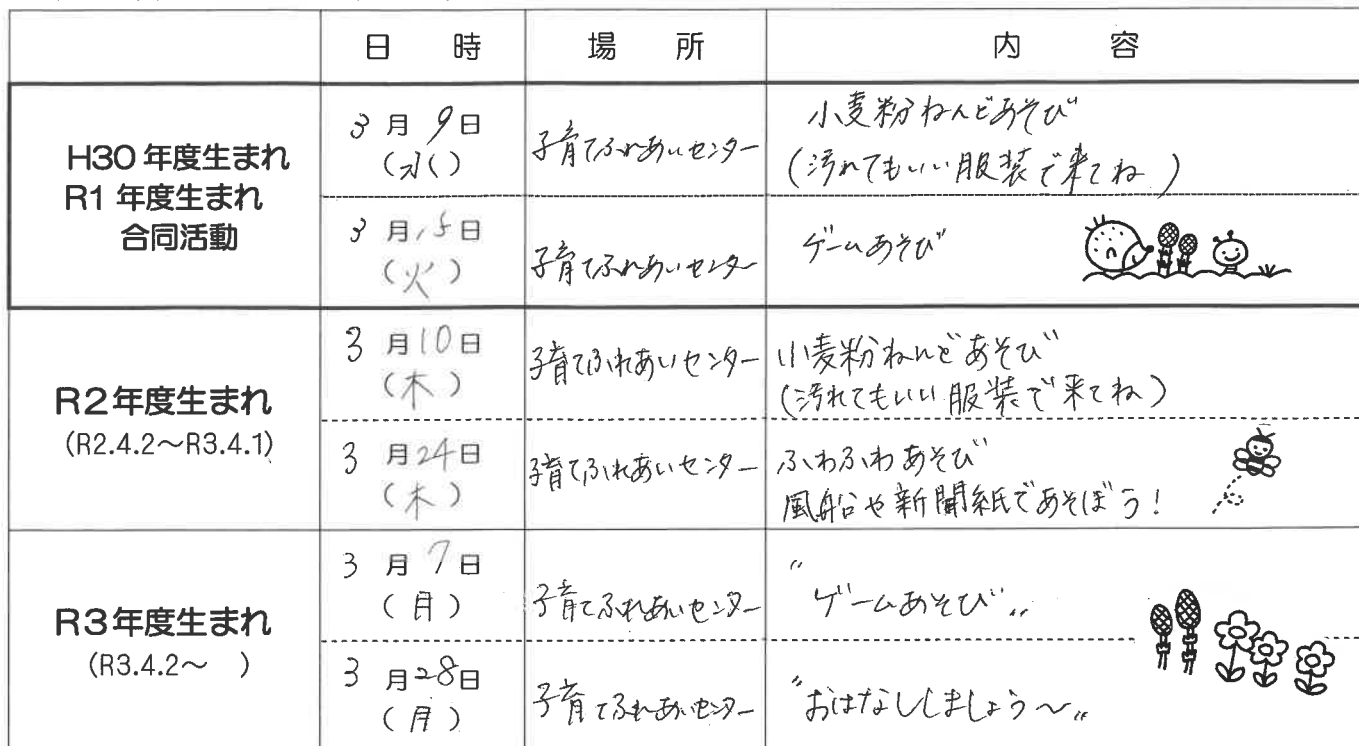 日 時 場 所 内 容
H30年度生まれ
R1年度生まれ
合同活動
3月9日
(水)
子育てふれあいセンター
小麦粉ねんどあそび
(汚れてもいい服装で来てね)
3月15日
(火)
子育てふれあいセンター
ゲームあそび
R2年度生まれ
(R2.4.2～R3.4.1)
3月10日
(木)
子育てふれあいセンター
小麦粉ねんどあそび
(汚れてもいい服装で来てね)
3月24日
(木)
子育てふれあいセンター
ふわふわあそび
風船や新聞紙であそぼう!
R3年度生まれ
(R3.4.2～ )
3月7日
(月)
子育てふれあいセンター
"ゲームあそび"
3月28日
(月)
子育てふれあいセンター
"おはなししましょう～"